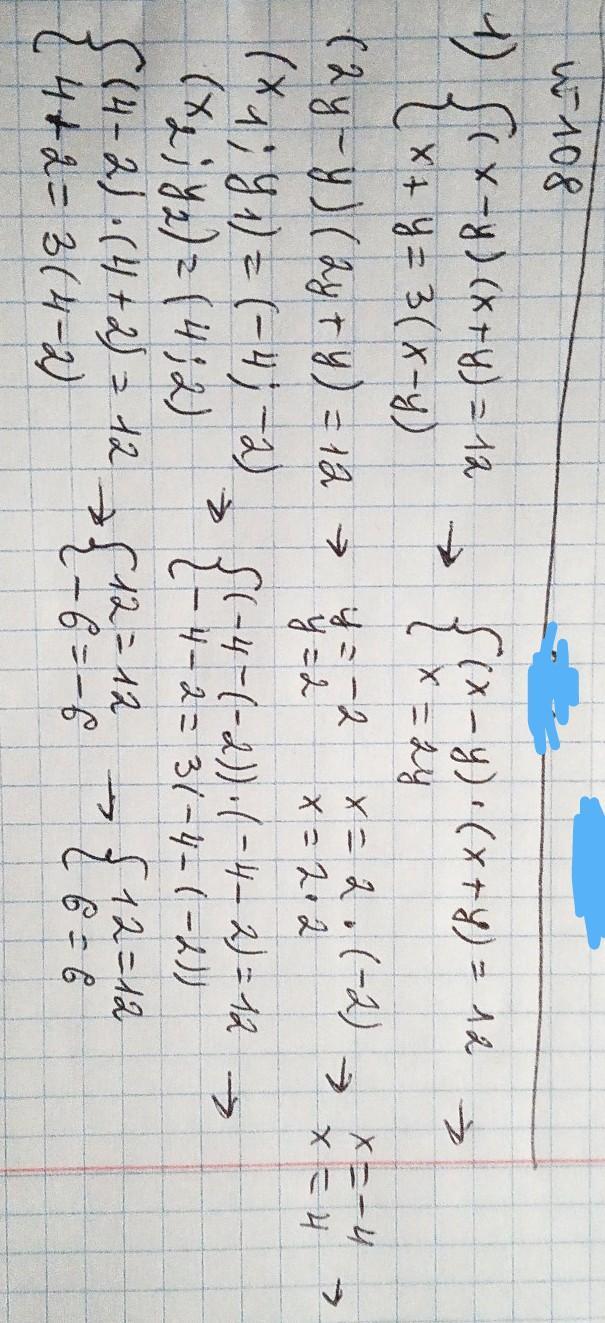 №108
1) { (x-y)(x+y)=12 → { (x-y)·(x+y)=12 →
{ x+y=3(x-y) { x=2y
(2y-y)(2y+y)=12 → y=-2 x=2·(-2) → x=-4 →
y=2 x=2·2 x=4
(x1; y1)=(-4; -2)
(x2; y2)=(4; 2) → { (-4-(-2))·(-4-2)=12 →
{ -4-2=3(-4-(-2))
{ (4-2)·(4+2)=12 → { 12=12 → { 12=12
{ 4+2=3(4-2) { -6=-6 { 6=6